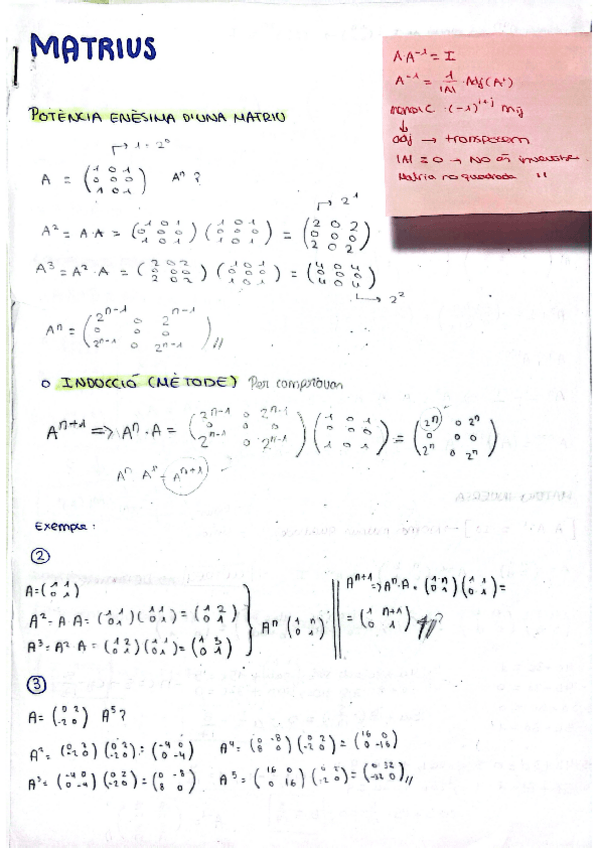 MATRIUS
A·A⁻¹ = I
A⁻¹ = 1/|A| · Adj(Aᵗ)
· (-1)^(i+j) Mij
adj → transposem
|A| = 0 → No és invertible.
Matriu no quadrada "
POTÈNCIA ENÈSIMA D'UNA MATRIU
→ 1 = 2⁰
A = (1 0 1 / 0 0 0 / 1 0 1) Aⁿ ?
→ 2¹
A² = A·A = (1 0 1 / 0 0 0 / 1 0 1) (1 0 1 / 0 0 0 / 1 0 1) = (2 0 2 / 0 0 0 / 2 0 2)
A³ = A²·A = (2 0 2 / 0 0 0 / 2 0 2) (1 0 1 / 0 0 0 / 1 0 1) = (4 0 4 / 0 0 0 / 4 0 4)
→ 2²
Aⁿ = (2ⁿ⁻¹ 0 2ⁿ⁻¹ / 0 0 0 / 2ⁿ⁻¹ 0 2ⁿ⁻¹) //
o INDUCCIÓ (MÈTODE) Per comprovar
Aⁿ⁺¹ => Aⁿ·A = (2ⁿ⁻¹ 0 2ⁿ⁻¹ / 0 0 0 / 2ⁿ⁻¹ 0 2ⁿ⁻¹) (1 0 1 / 0 0 0 / 1 0 1) = (2ⁿ 0 2ⁿ / 0 0 0 / 2ⁿ 0 2ⁿ)
Aⁿ⁺¹
Exemple:
②
A = (1 1 / 0 1)
A² = A·A = (1 1 / 0 1) (1 1 / 0 1) = (1 2 / 0 1)
A³ = A²·A = (1 2 / 0 1) (1 1 / 0 1) = (1 3 / 0 1)
Aⁿ (1 n / 0 1)
Aⁿ⁺¹ => Aⁿ·A = (1 n / 0 1) (1 1 / 0 1) =
= (1 n+1 / 0 1)
③
A = (0 2 / -2 0) A⁵?
A² = (0 2 / -2 0) (0 2 / -2 0) = (-4 0 / 0 -4) A⁴ = (0 -8 / 8 0) (0 2 / -2 0) = (16 0 / 0 -16)
A³ = (-4 0 / 0 -4) (0 2 / -2 0) = (0 -8 / 8 0) A⁵ = (16 0 / 0 16) (0 2 / -2 0) = (0 32 / -32 0) //